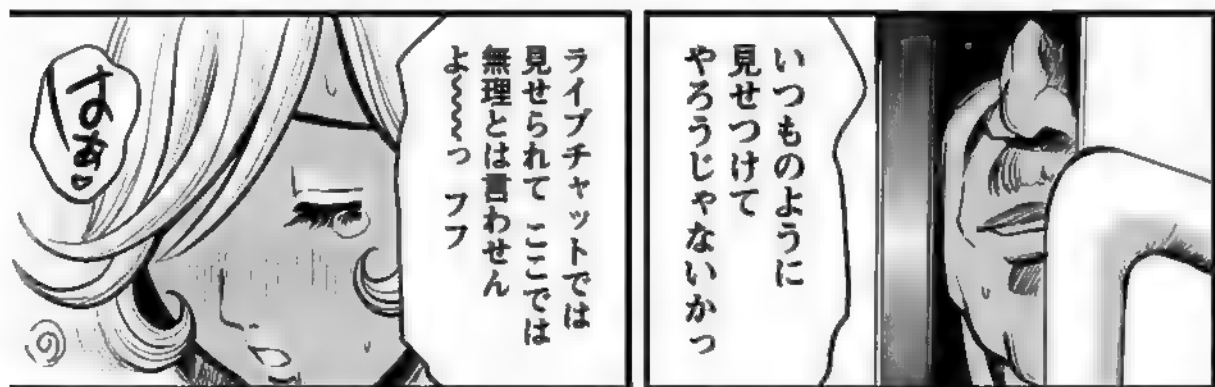 いつものように
見せつけて
やろうじゃないかっ
ライブチャットでは
見せられて ここでは
無理とは言わせん
よ~~~っ フフ
はぁ♡